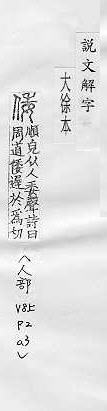 說文解字
大徐本
順皃从人委聲詩曰
周道倭遟於為切
〈人部
V8上
P2
a3〉